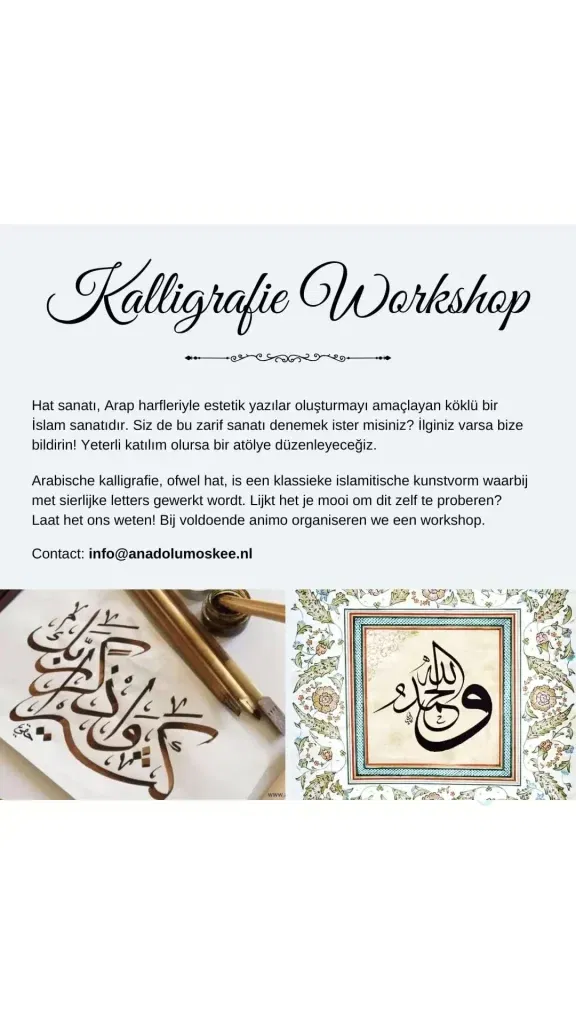 Kalligrafie Workshop
Hat sanatı, Arap harfleriyle estetik yazılar oluşturmayı amaçlayan köklü bir
İslam sanatıdır. Siz de bu zarif sanatı denemek ister misiniz? İlginiz varsa bize
bildirin! Yeterli katılım olursa bir atölye düzenleyeceğiz.
Arabische kalligrafie, ofwel hat, is een klassieke islamitische kunstvorm waarbij
met sierlijke letters gewerkt wordt. Lijkt het je mooi om dit zelf te proberen?
Laat het ons weten! Bij voldoende animo organiseren we een workshop.
Contact: info@anadolumoskee.nl
واذكر ربك
والحمد لله